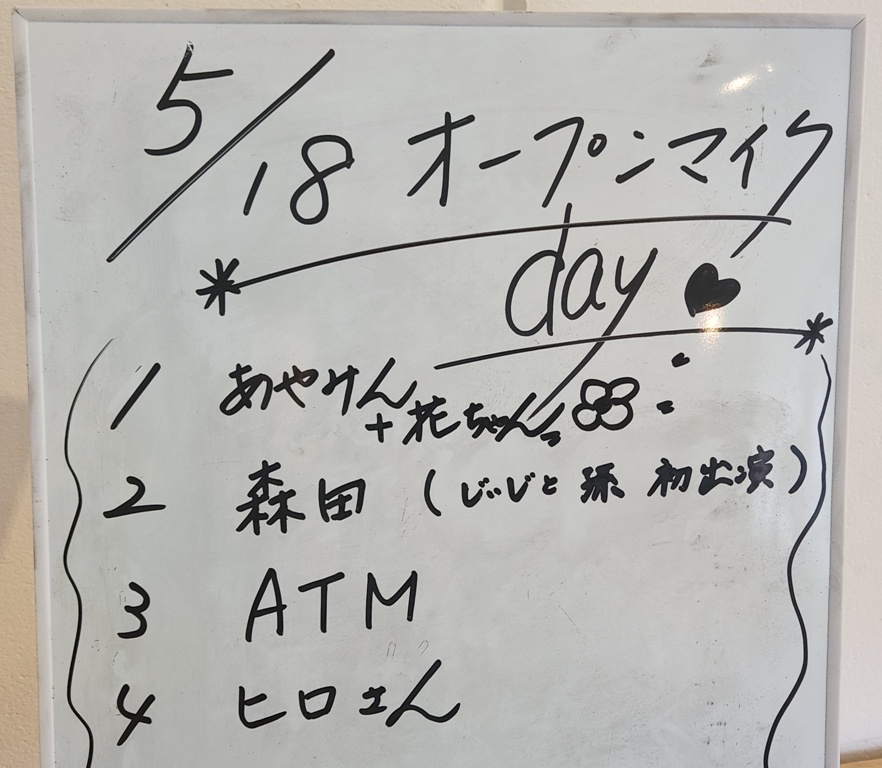 5/18 オープンマイク
day ♥
1 あやみん
+花ちゃん
2 森田 (じぃじと孫 初出演)
3 ATM
4 ヒロさん